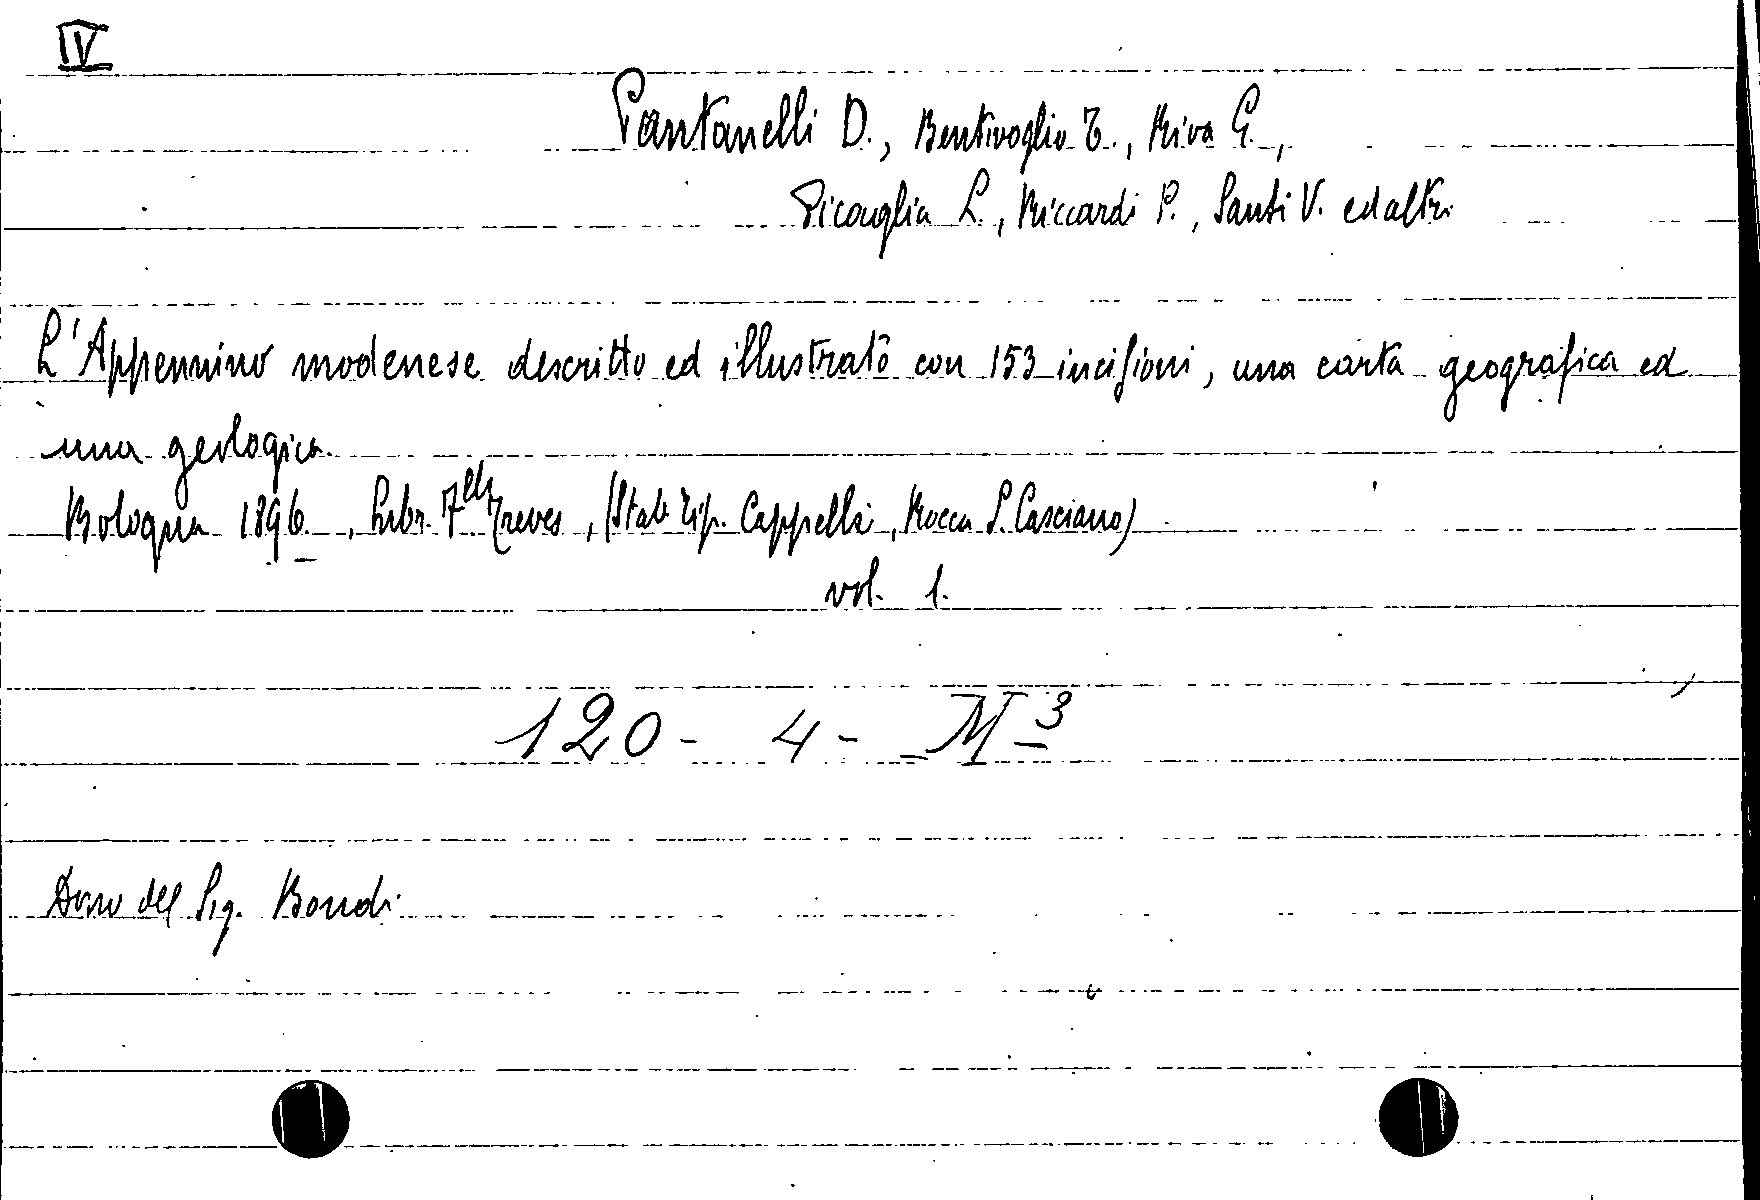 IV
Pantanelli D., Bentivoglio T., Riva G.,
Picaglia L., Riccardi P., Santi V. ed altri
L'Appennino modenese descritto ed illustrato con 153 incisioni, una carta geografica ed
una geologica.
Bologna 1896, Libr. Flli Treves, (Stab. Tip. Cappelli, Rocca S. Casciano)
vol. 1.
120 - 4 - M 3
Dono del Sig. Bondi